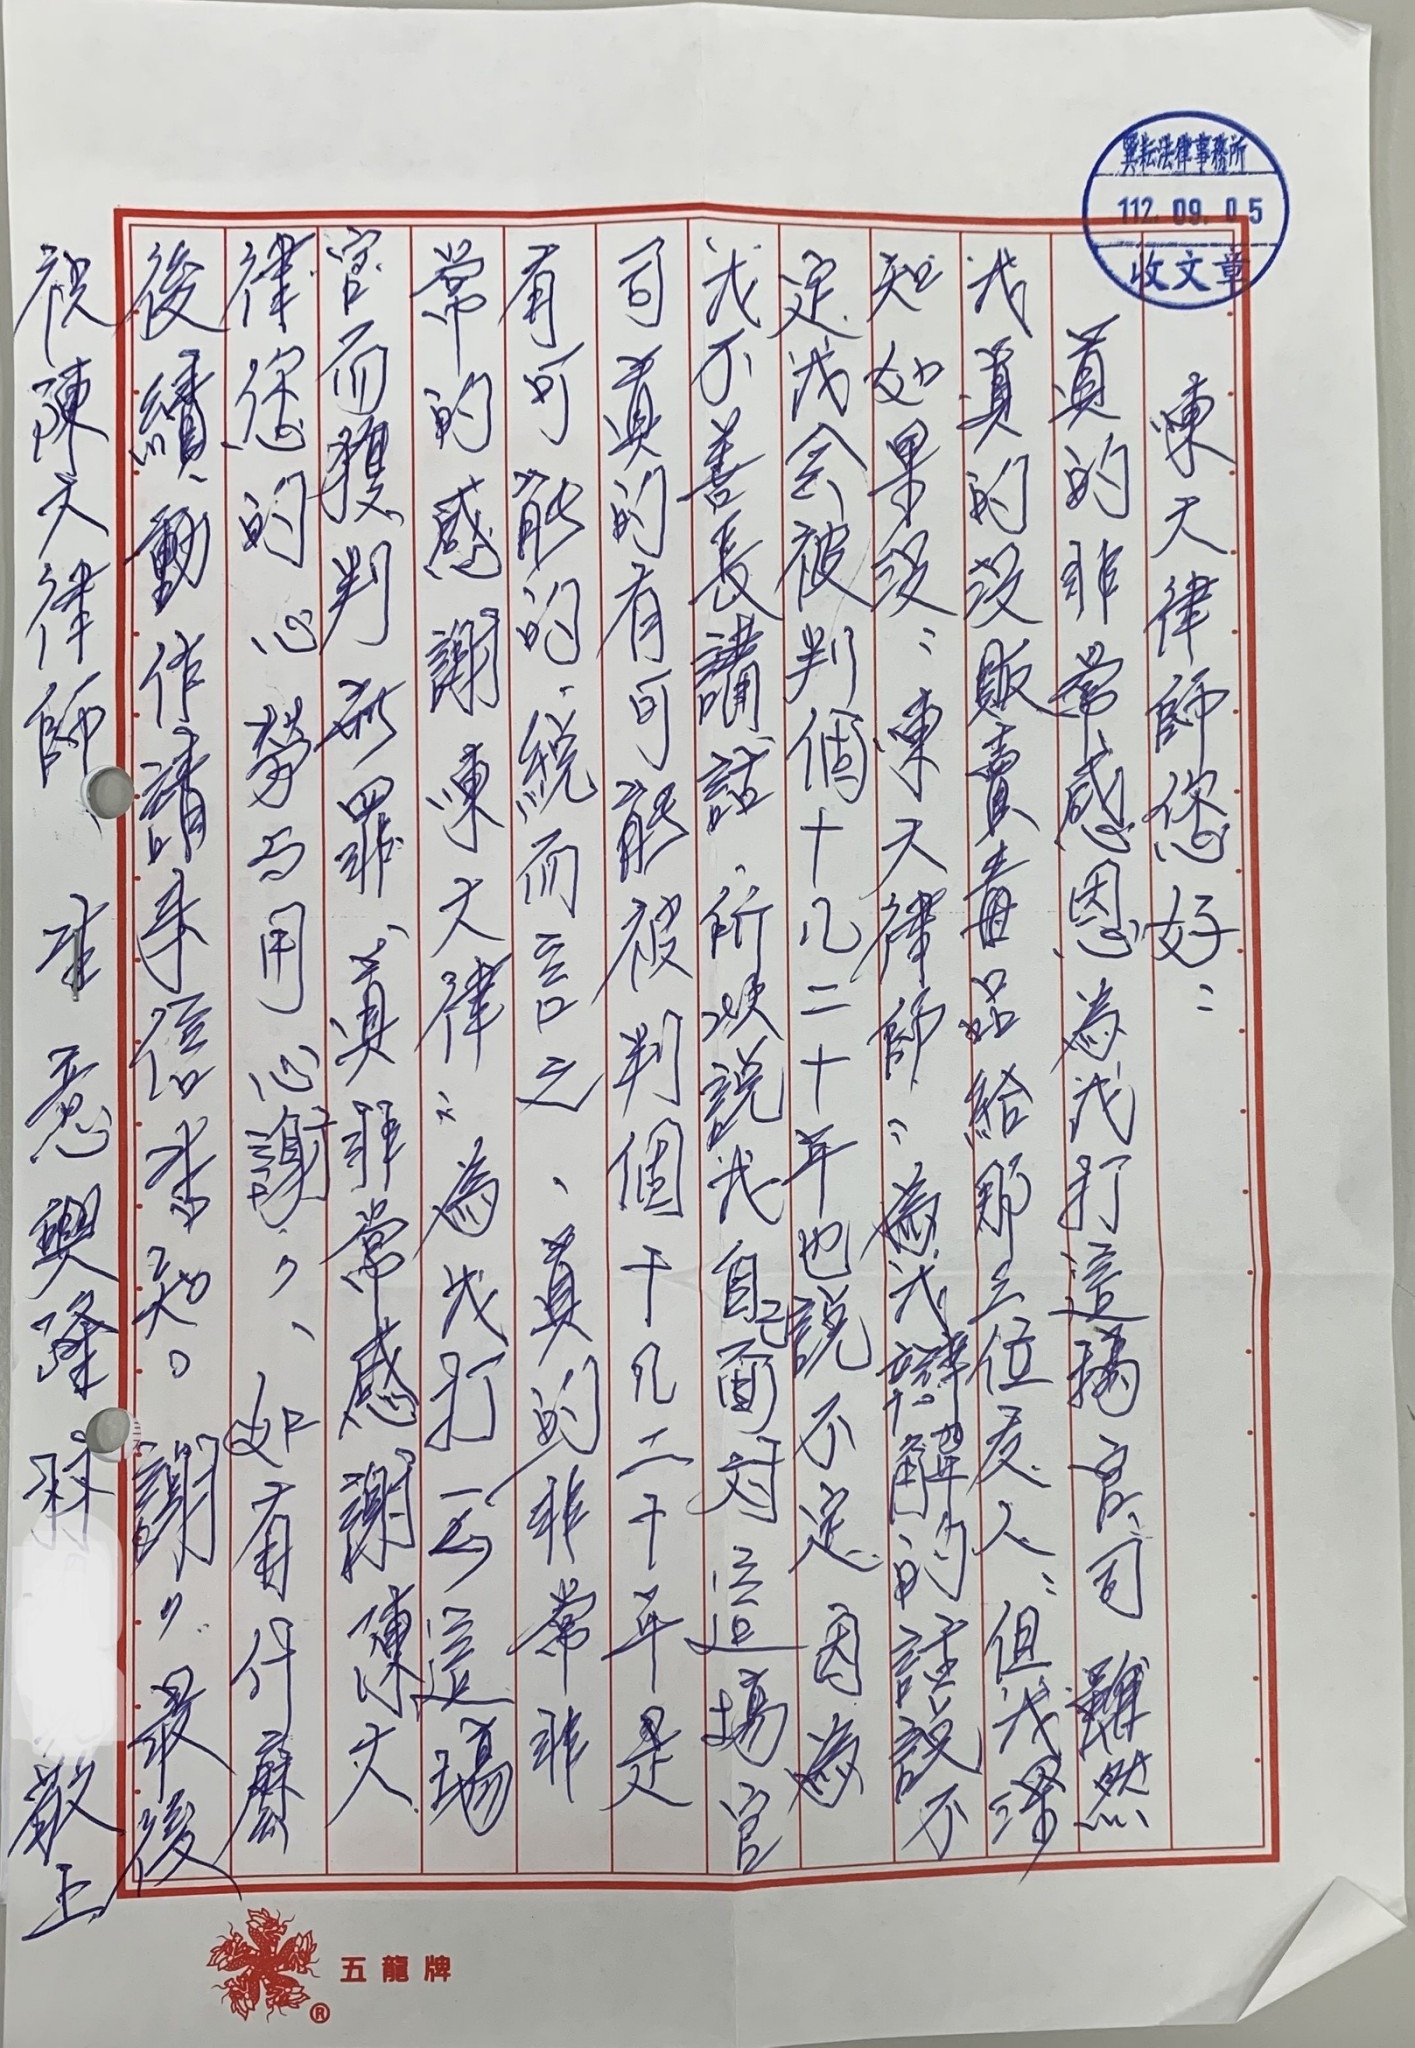 陳大律師您好：
真的非常感恩為我打這場官司 雖然
我真的沒販賣毒品給那三位友人：但我深
知如果沒：陳大律師：為我辯解的話說不
定我会被判個十几二十年也說不定 因為
我不善長講話、所以說我自己面对這場官
司真的有可能被判個十几二十年是
有可能的、總而言之、真的非常非
常的感謝陳大律：為我打這場
官而獲判無罪、真非常感謝陳大
律您的心勞与用心謝〃、如有什麼
後續動作請來信告知。謝〃 最後
祝陳大律師 生意興隆
敬上
巽耘法律事務所
112. 09. 05
收文章
五龍牌
®